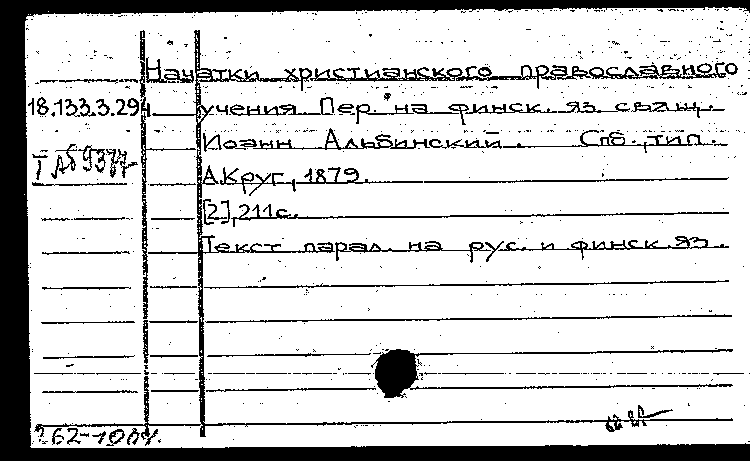 Начатки христианского православного
18.133.3.294 учения Пер. на финск. яз. свящ.
Иоанн Альбинский. Спб., тип.
Т Аб 9377
А.Круг, 1879.
[2], 211с.
Текст парал. на рус. и финск. яз.
262-100х.